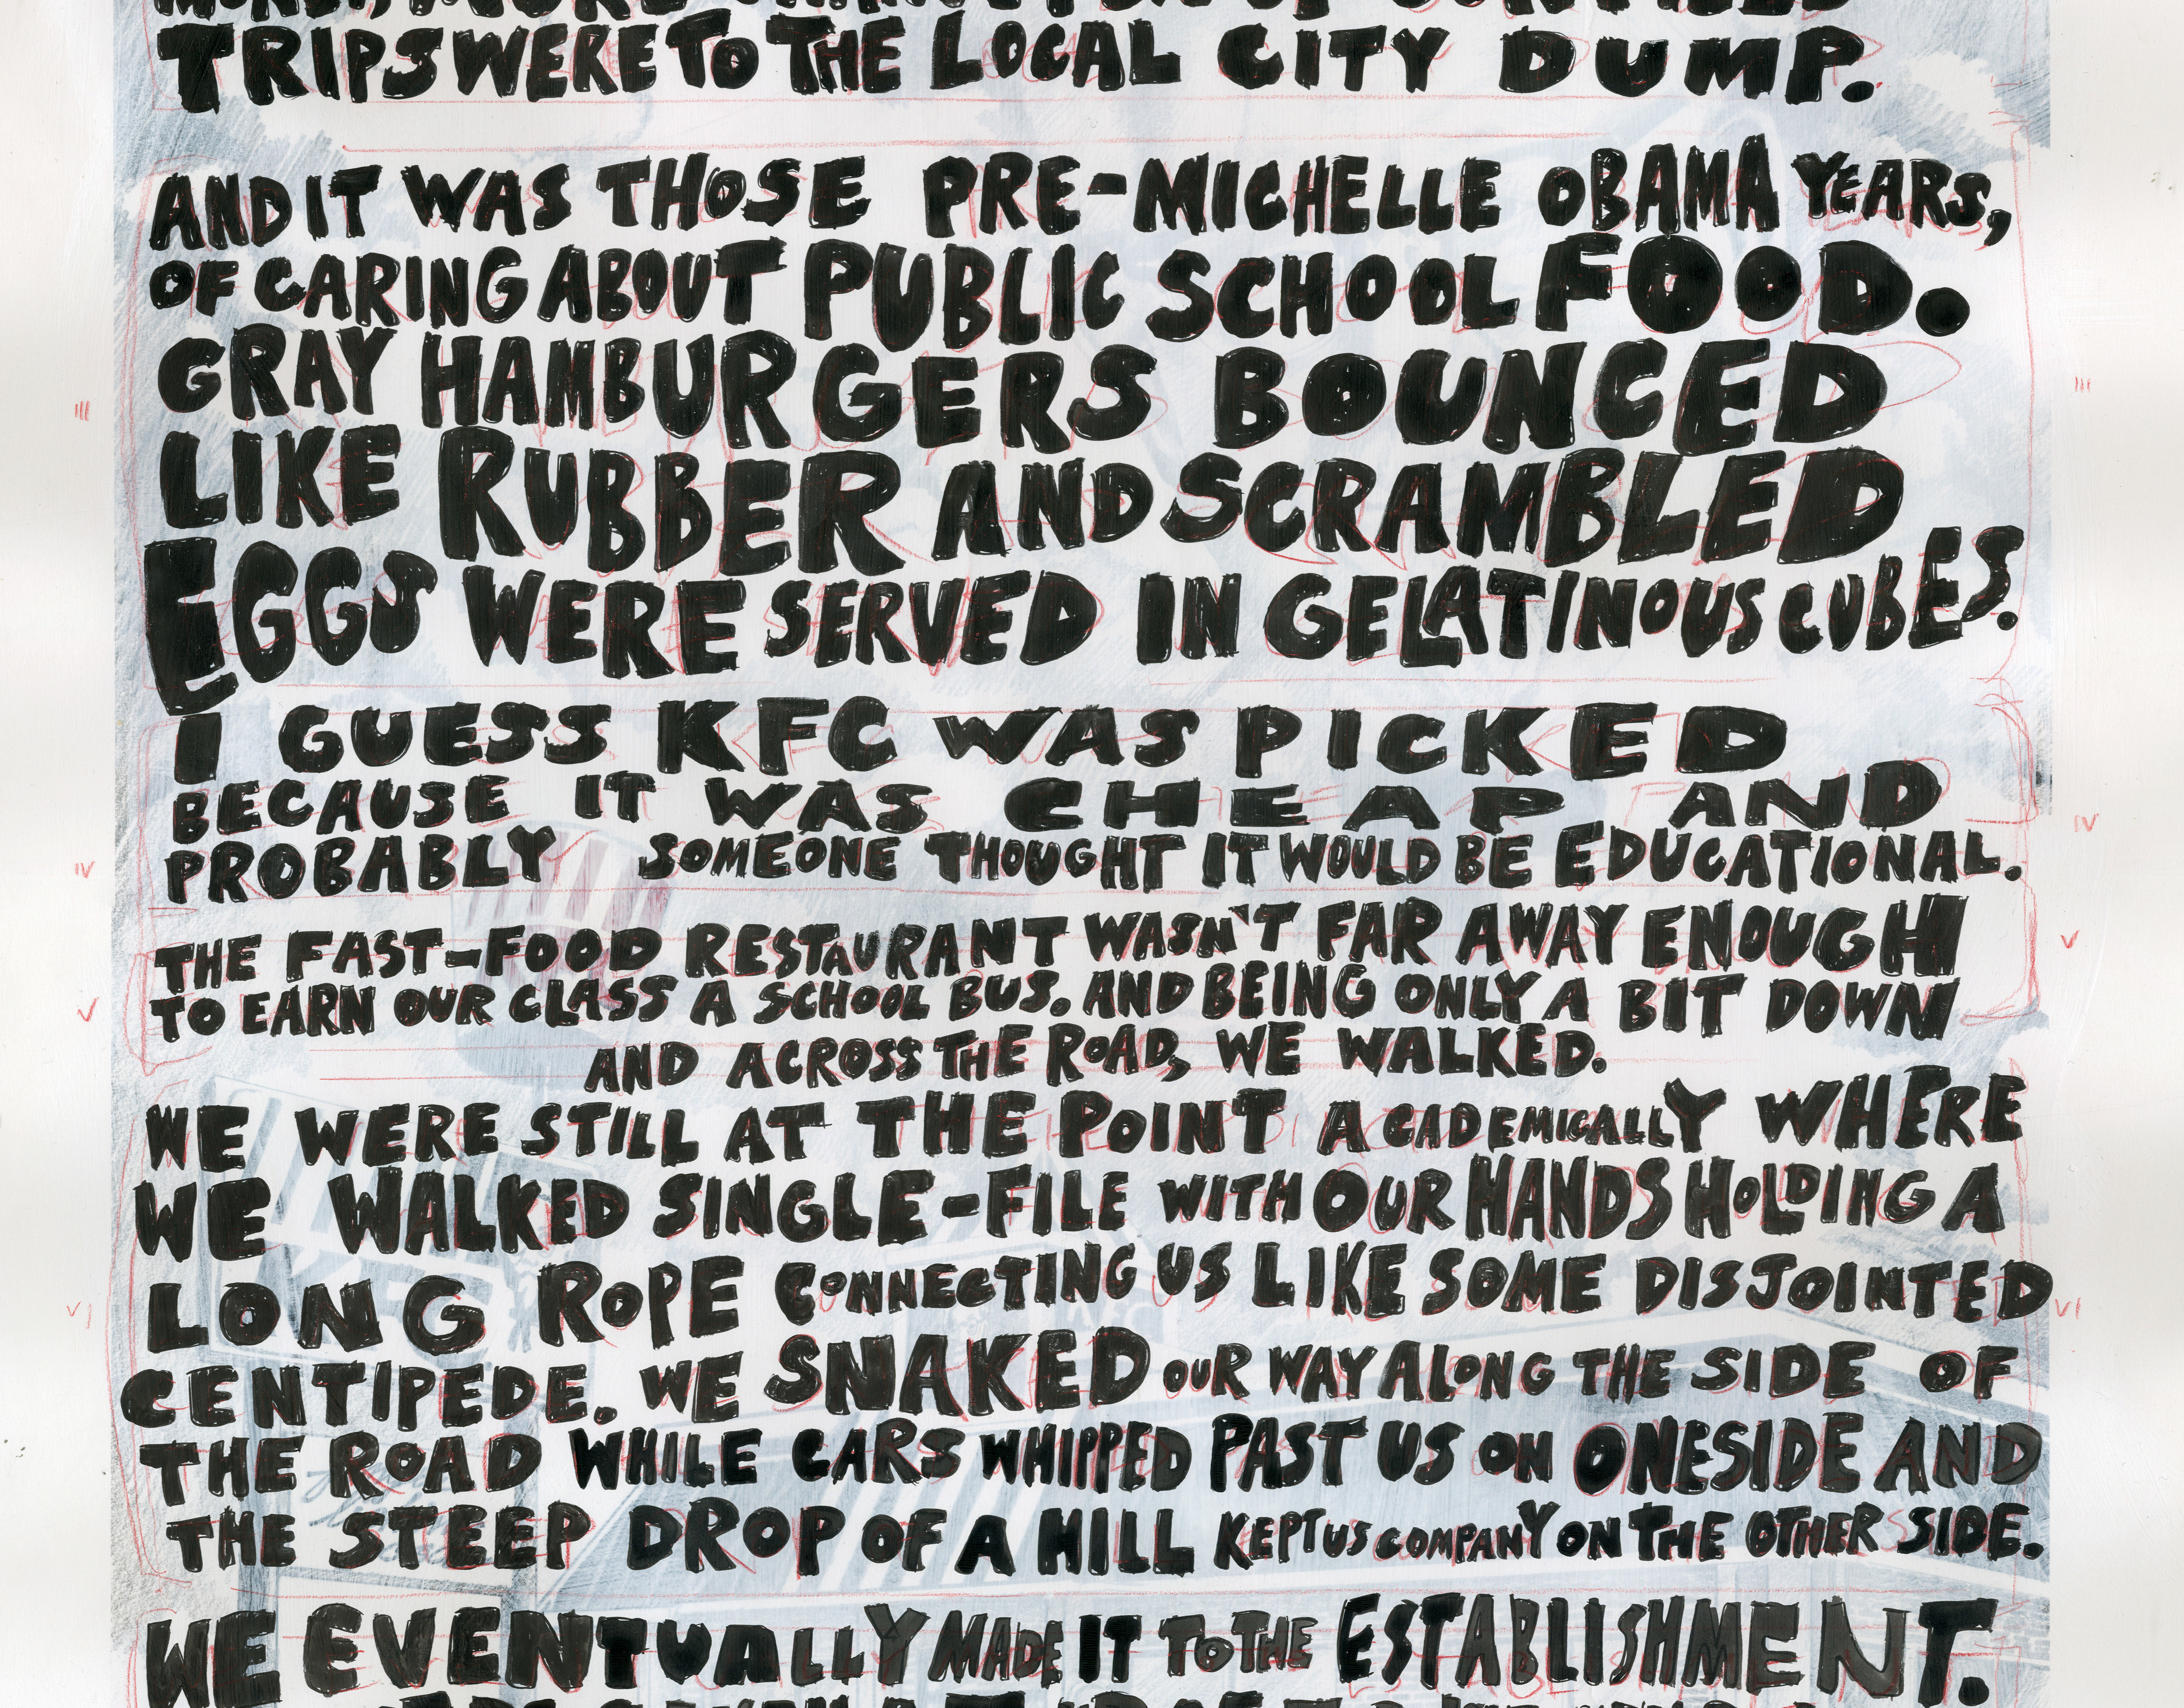 TRIPS WERE TO THE LOCAL CITY DUMP.
AND IT WAS THOSE PRE-MICHELLE OBAMA YEARS,
OF CARING ABOUT PUBLIC SCHOOL FOOD.
GRAY HAMBURGERS BOUNCED
LIKE RUBBER AND SCRAMBLED
EGGS WERE SERVED IN GELATINOUS CUBES.
III
III
I GUESS KFC WAS PICKED
BECAUSE IT WAS CHEAP AND
PROBABLY SOMEONE THOUGHT IT WOULD BE EDUCATIONAL.
IV
IV
THE FAST-FOOD RESTAURANT WASN'T FAR AWAY ENOUGH
TO EARN OUR CLASS A SCHOOL BUS. AND BEING ONLY A BIT DOWN
AND ACROSS THE ROAD, WE WALKED.
V
V
WE WERE STILL AT THE POINT ACADEMICALLY WHERE
WE WALKED SINGLE-FILE WITH OUR HANDS HOLDING A
LONG ROPE CONNECTING US LIKE SOME DISJOINTED
CENTIPEDE. WE SNAKED OUR WAY ALONG THE SIDE OF
THE ROAD WHILE CARS WHIPPED PAST US ON ONE SIDE AND
THE STEEP DROP OF A HILL KEPT US COMPANY ON THE OTHER SIDE.
VI
VI
WE EVENTUALLY MADE IT TO THE ESTABLISHMENT.